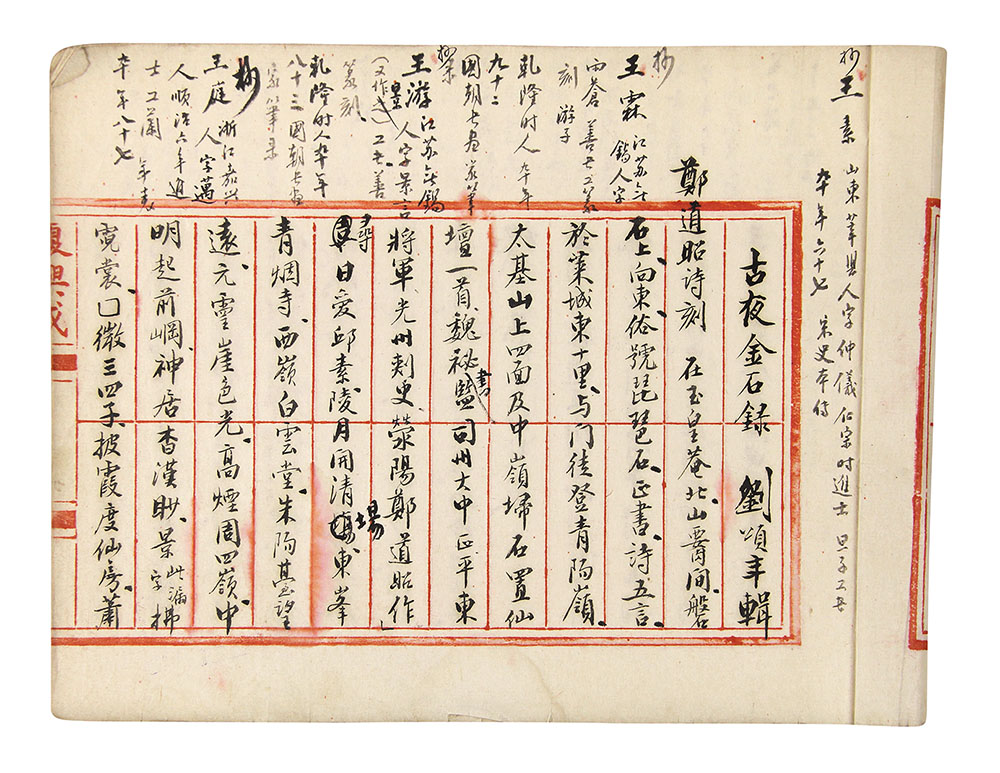 抄
王素 山東莘縣人字仲儀仁宗时進士 旦子工書
卒年六十七 宋史本传
古夜金石録 劉頌年輯
鄭道昭詩刻 在玉皇菴北山層间磐
石上向東俗號琵琶石正書詩五言
於萊城東十里与门徒登青陽嶺
太基山上四面及中嶺埽石置仙
壇一首魏祕書監司州大中正平東
將軍光州刾史熒陽鄭道昭作
尋日愛邱素陵月開清場東峯
青烟寺西嶺白雲堂朱陽臺望
遠元靈崖色光高煙周四嶺中
明起前崗神居杳漢眇景此漏字拂
霓裳口微三四子披霞度仙房蕭
抄
王霖 江苏无
錫人字
雨蒼 善书工篆
刻 游子
乾隆时人卒年
九十二
國朝书画家筆
录
王游 江苏无錫
人字景言
(又作昱) 工书善
篆刻
乾隆时人卒年
八十三國朝书画
家筆录
抄
王庭 浙江嘉兴
人字邁
人順治六年進
士工蘭 年表
卒年八十七
復興成